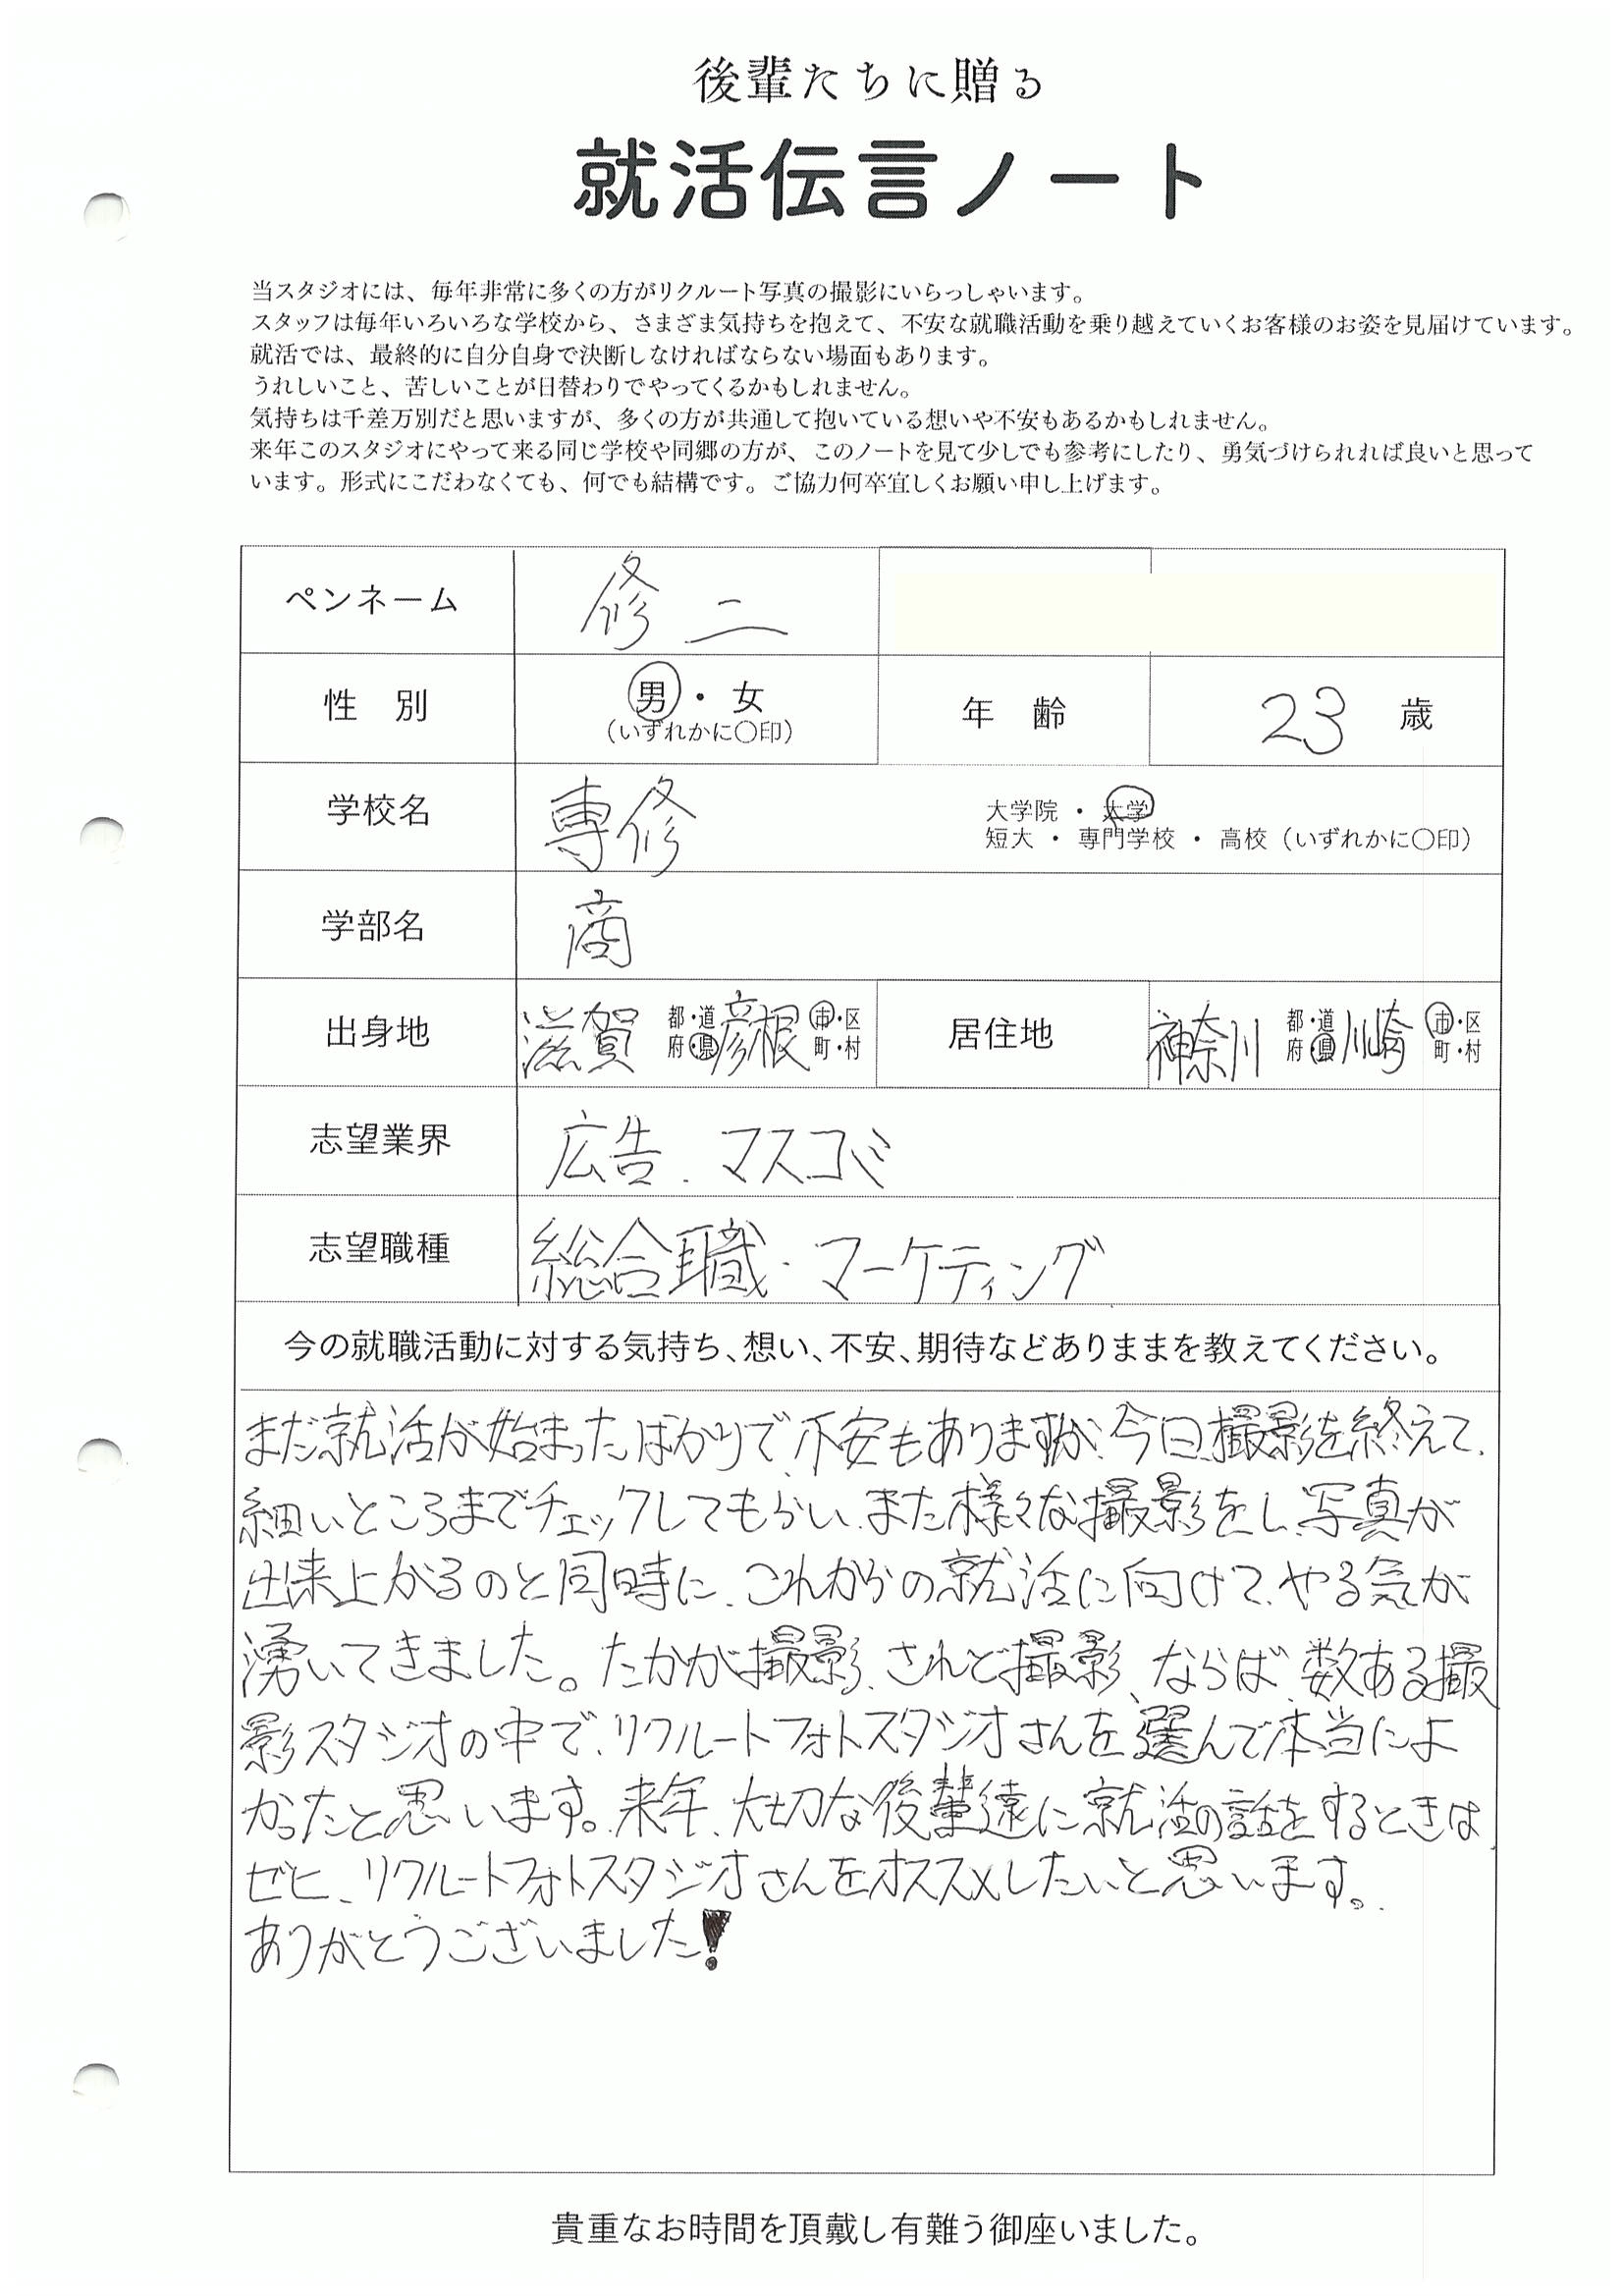 後輩たちに贈る
就活伝言ノート
当スタジオには、毎年非常に多くの方がリクルート写真の撮影にいらっしゃいます。
スタッフは毎年いろいろな学校から、さまざま気持ちを抱えて、不安な就職活動を乗り越えていくお客様のお姿を見届けています。
就活では、最終的に自分自身で決断しなければならない場面もあります。
うれしいこと、苦しいことが日替わりでやってくるかもしれません。
気持ちは千差万別だと思いますが、多くの方が共通して抱いている想いや不安もあるかもしれません。
来年このスタジオにやって来る同じ学校や同郷の方が、このノートを見て少しでも参考にしたり、勇気づけられれば良いと思って
います。形式にこだわなくても、何でも結構です。ご協力何卒宜しくお願い申し上げます。
ペンネーム 修二
性 別 男・女 (いずれかに〇印) 年 齢 23 歳
学校名 専修 大学院・大学
短大・専門学校・高校(いずれかに〇印)
学部名 商
出身地 滋賀 都・道府・県 彦根 市・区町・村 居住地 神奈川 都・道府・県 川崎 市・区町・村
志望業界 広告、マスコミ
志望職種 総合職・マーケティング
今の就職活動に対する気持ち、想い、不安、期待などありままを教えてください。
まだ就活が始まったばかりで、不安もありますが、今日、撮影を終えて、
細いところまでチェックしてもらい、また様々な撮影をし、写真が
出来上がるのと同時に、これからの就活に向けて、やる気が
湧いてきました。たかが撮影、されど撮影、ならば、数ある撮
影スタジオの中で、リクルートフォトスタジオさんを選んで本当によ
かったと思います。来年、大切な後輩達に就活の話をするときは
ゼヒ、リクルートフォトスタジオさんをオススメしたいと思います。
ありがとうございました!
貴重なお時間を頂戴し有難う御座いました。